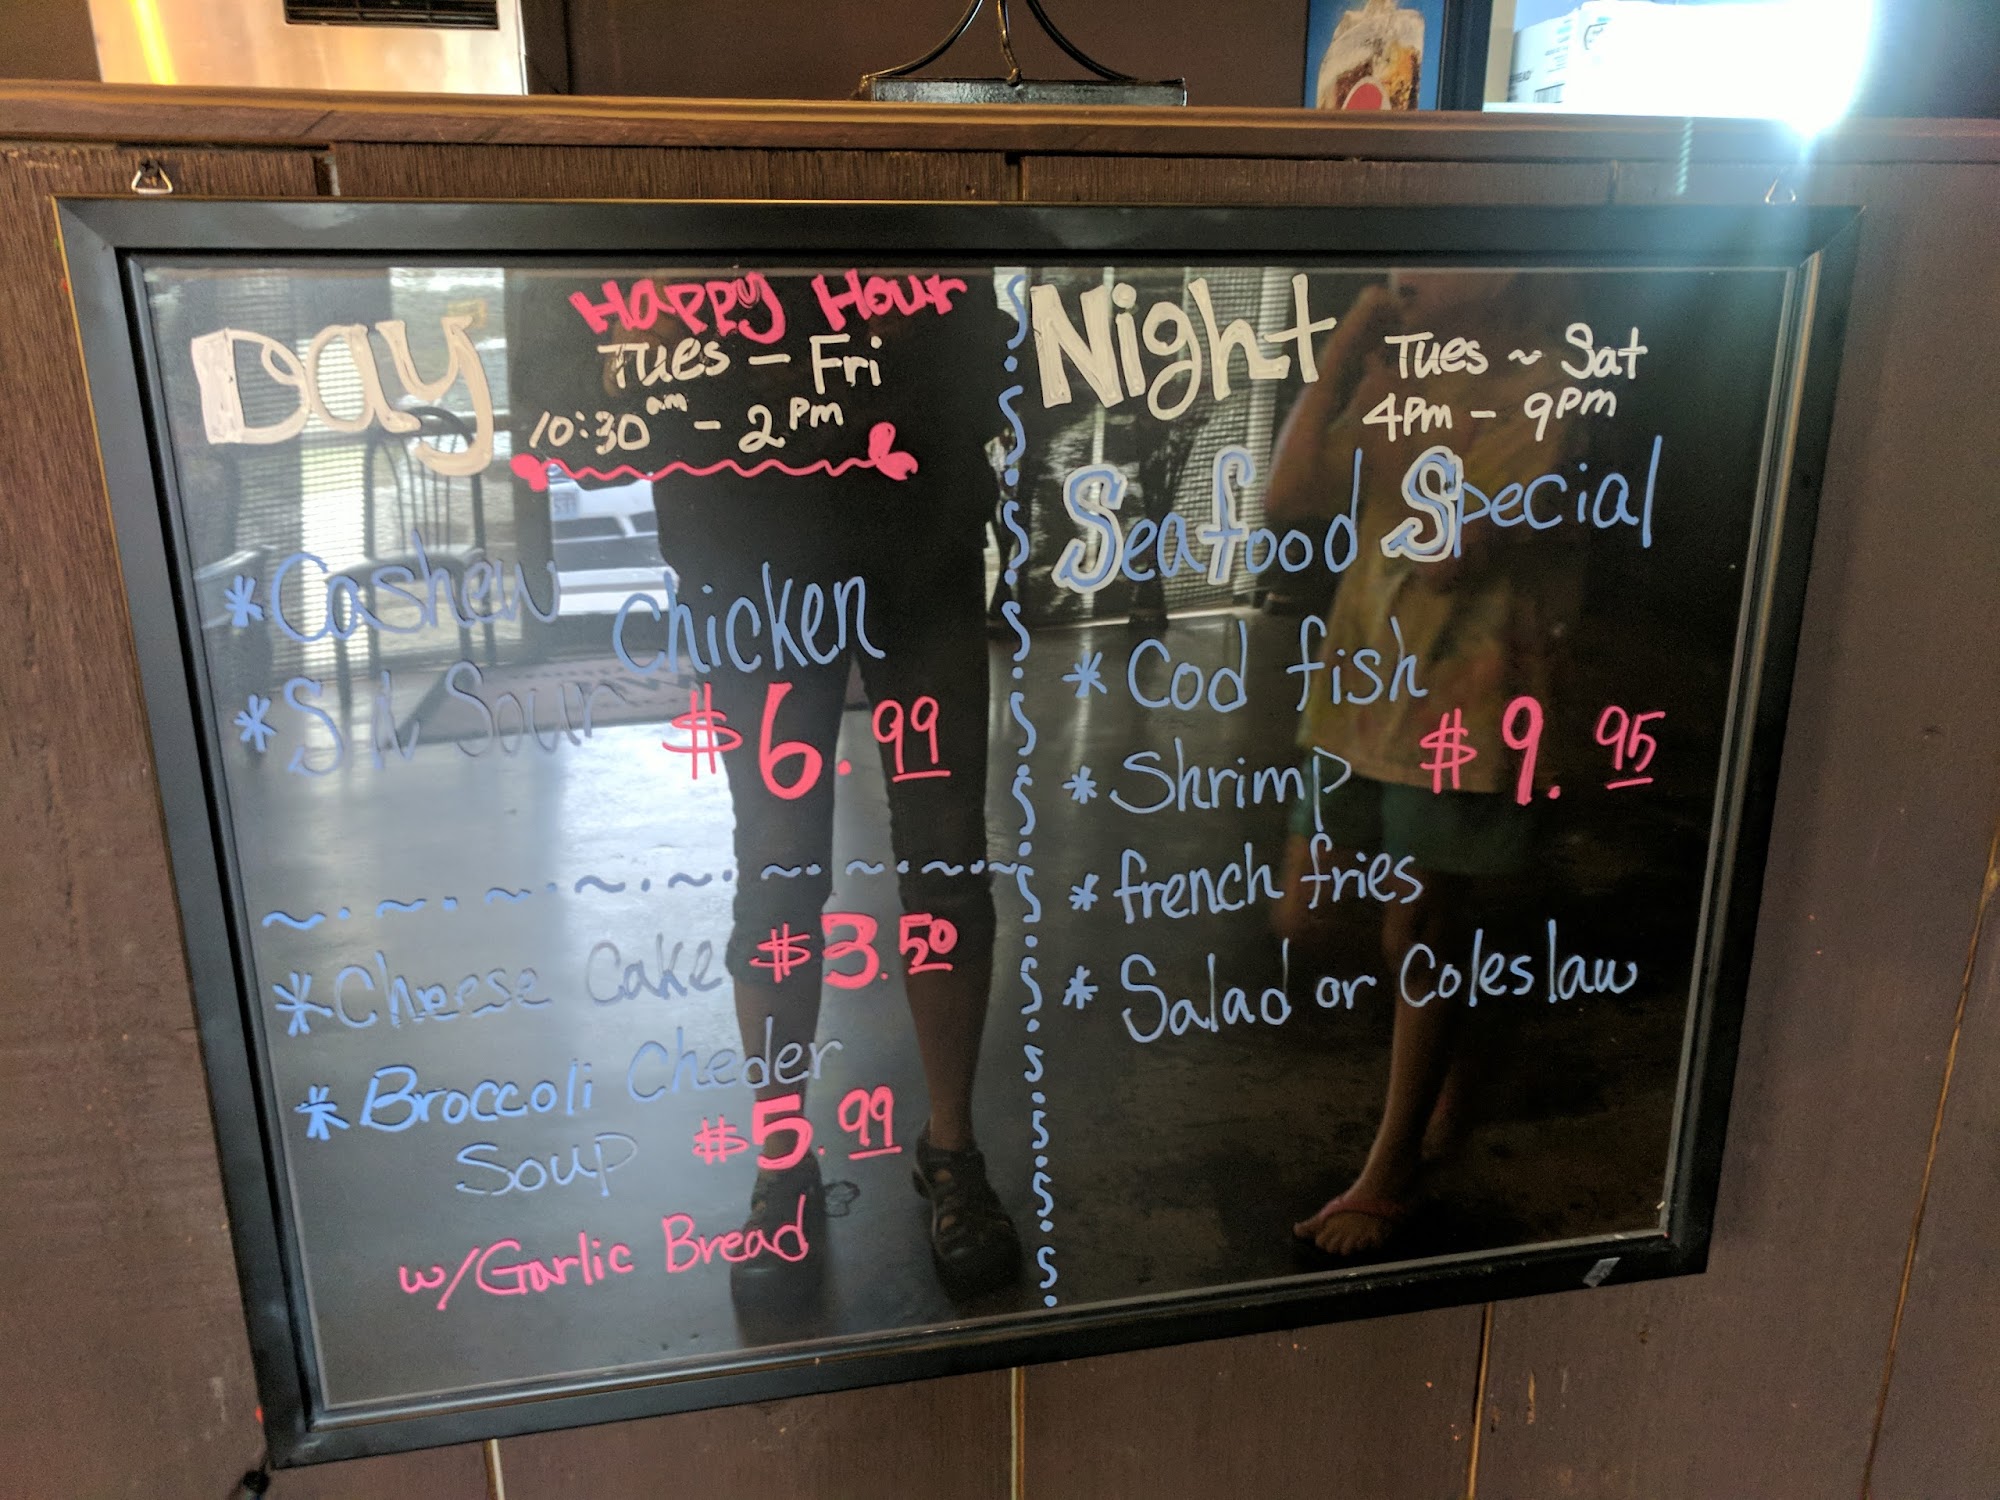 Day
Happy Hour
Tues - Fri
10:30am - 2pm
* Cashew Chicken
* S N Sour $6.99
* Cheese Cake $3.50
* Broccoli Cheder
Soup $5.99
w/Garlic Bread
Night
Tues ~ Sat
4pm - 9pm
Seafood Special
* Cod fish
$9.95
* Shrimp
* french fries
* Salad or Coleslaw